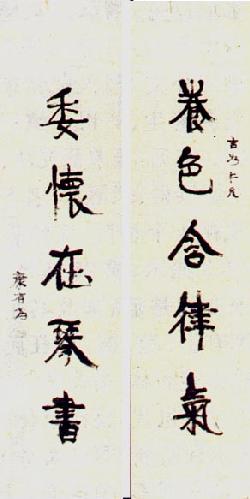 養色含律氣
仁兄
委懷在琴書
康有為